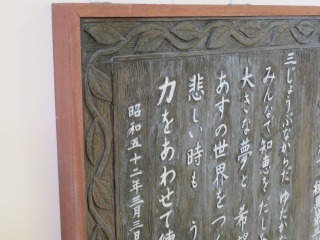 三じょうぶなからだ ゆたかな
みんなで知恵をだし
大きな夢と 希望
あすの世界をつく
悲しい時も う
力をあわせて
昭和五十二年三月三日